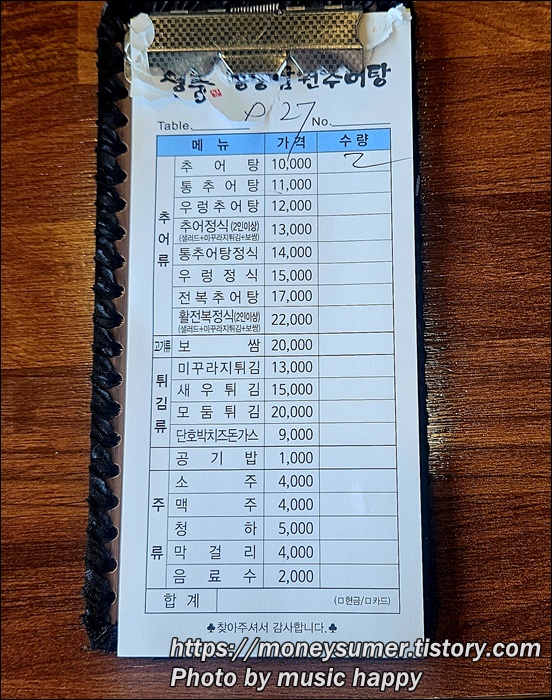 남원추어탕
Table. P 27 No.
메 뉴 가 격 수 량
추어류
추 어 탕 10,000 2
통 추 어 탕 11,000
우렁추어탕 12,000
추어정식(2인이상) 13,000
(샐러드+미꾸라지튀김+보쌈)
통추어탕정식 14,000
우 렁 정 식 15,000
전복추어탕 17,000
활전복정식(2인이상) 22,000
(샐러드+미꾸라지튀김+보쌈)
고기류 보 쌈 20,000
튀김류
미꾸라지튀김 13,000
새 우 튀 김 15,000
모 둠 튀 김 20,000
단호박치즈돈가스 9,000
공 기 밥 1,000
주류
소 주 4,000
맥 주 4,000
청 하 5,000
막 걸 리 4,000
음 료 수 2,000
합 계 (□현금/□카드)
♣찾아주셔서 감사합니다.♣
https://moneysumer.tistory.com
Photo by music happy